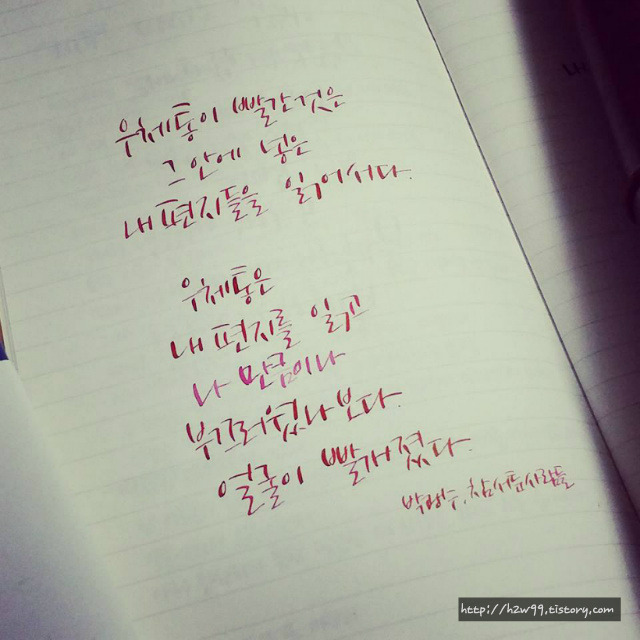 우체통이 빨간것은
그 안에 넣은
내 편지들을 읽어서다.
우체통은
내 편지를 읽고
나 만큼이나
부끄러웠나보다.
얼굴이 빨개졌다.
박병수, 참서툰사람들
http://hzw99.tistory.com